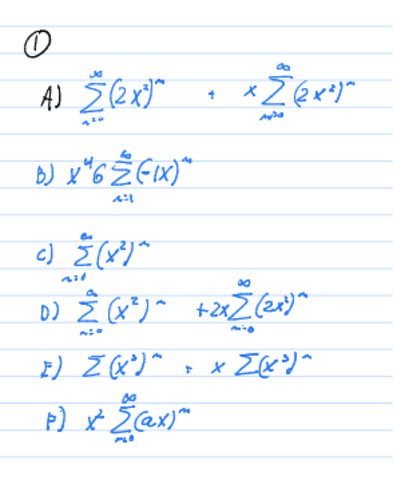 ①
A) ∑_{n=0}^{∞} (2x²)ⁿ + x ∑_{n=0}^{∞} (2x²)ⁿ
B) x⁴6 ∑_{n=1}^{∞} (-1x)ⁿ
C) ∑_{n=1}^{∞} (x²)ⁿ
D) ∑_{n=0}^{∞} (x²)ⁿ +2x ∑_{n=0}^{∞} (2x²)ⁿ
E) ∑ (x³)ⁿ + x ∑(x³)ⁿ
F) x² ∑_{n=0}^{∞} (ax)ⁿ